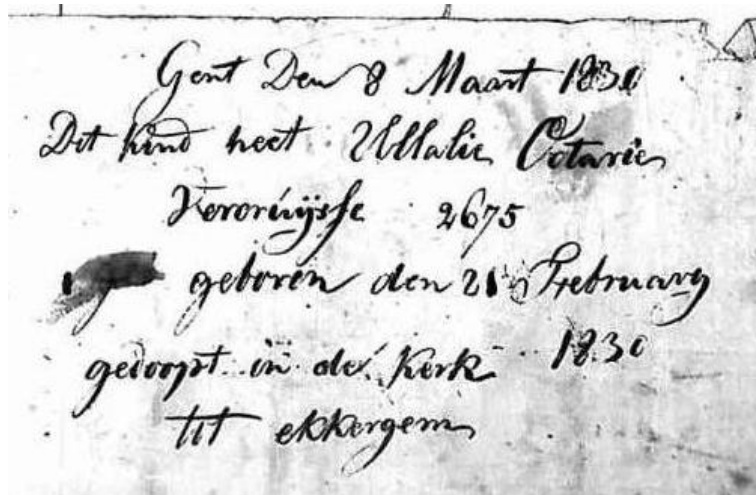 Gent Den 8 Maart 1830
Dit kind heet Ullalie Cotarie
Veroruijsse 2675
geboren den 21 February
1830
gedoopt in de kerk
tit ekkergem